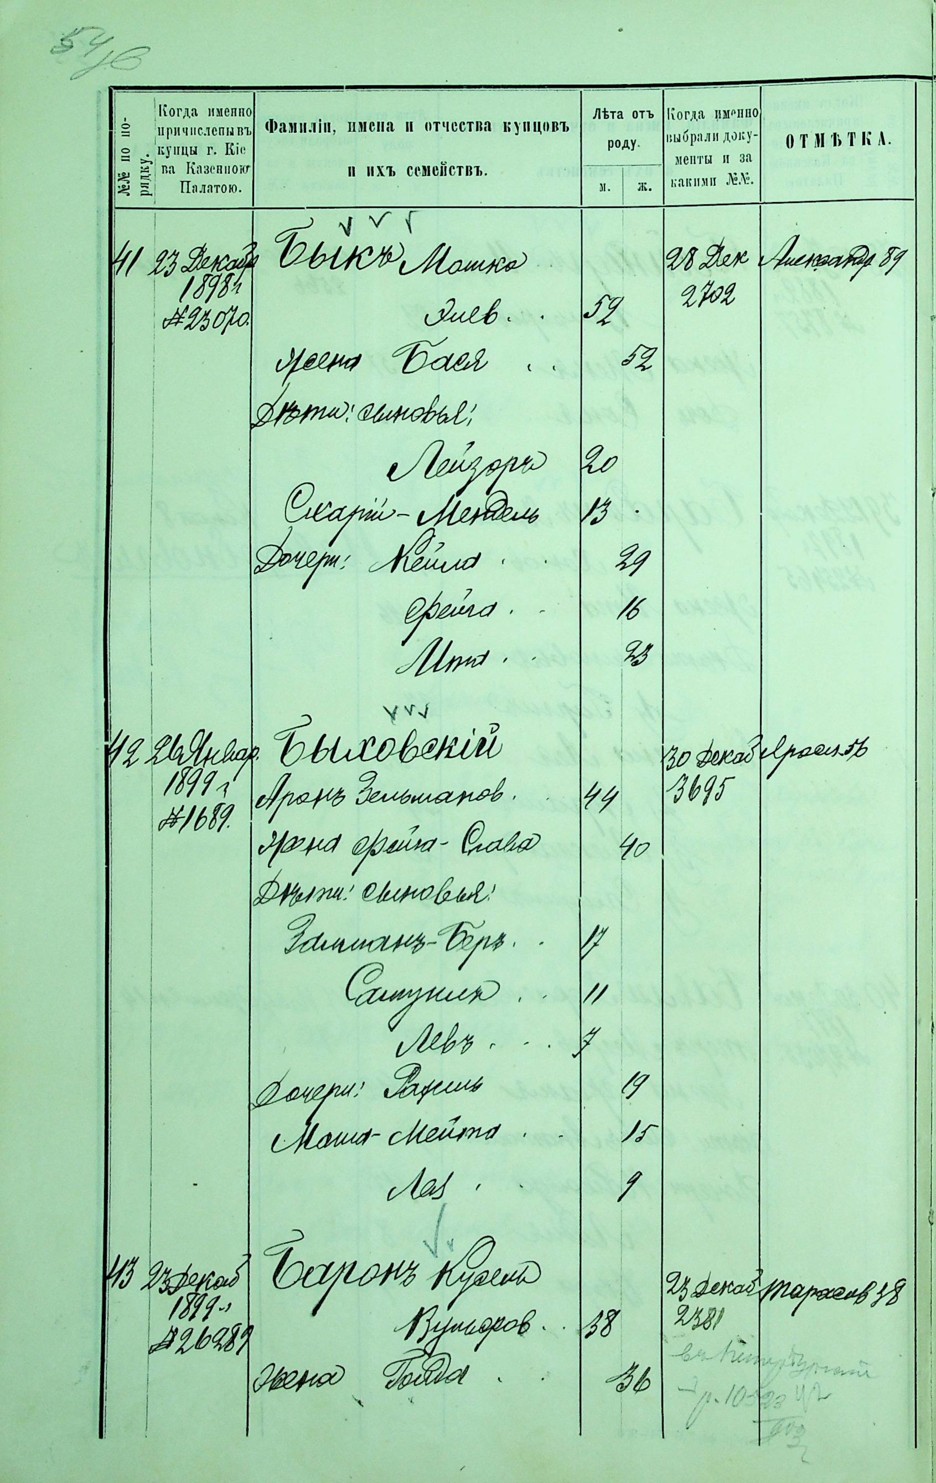 №№ по по-
рядку.
Когда именно
причислены въ
купцы г. Кіе
ва Казенною
Палатою.
Фамиліи, имена и отчества купцовъ
и ихъ семействъ.
Лѣта отъ
роду.
м. ж.
Когда именно
выбрали доку-
менты и за
какими №№.
ОТМѢТКА.
41 23 Декаб 1898 г. #23070.
Быкъ Мошко
Элиев. . 52
28 Дек 2702
Александр 89
Жена Бася . . 52
Дѣти: сыновья:
Лейзоръ 20
Схарій-Мендель 13
Дочери: Кейла . . 29
Фейга . . 16
Ита . . 23
42 26 Январ. 1899 г #1689.
Быховскій
30 Декаб 3695
Яросл 56
Аронъ Зельманов. . 44
Жена Фейга-Слава 40
Дѣти: сыновья:
Залманъ-Беръ. . 17
Самуилъ . . 11
Левъ . . . 7
Дочери: Рахиль 19
Маша-Мейта . . 15
Лея . . 9
43 23 Декаб 1899 г #26289
Баронъ Кусель
Вульфов. . 38
23 Декаб 2381
Тарасов 38
Жена Голда . . 36